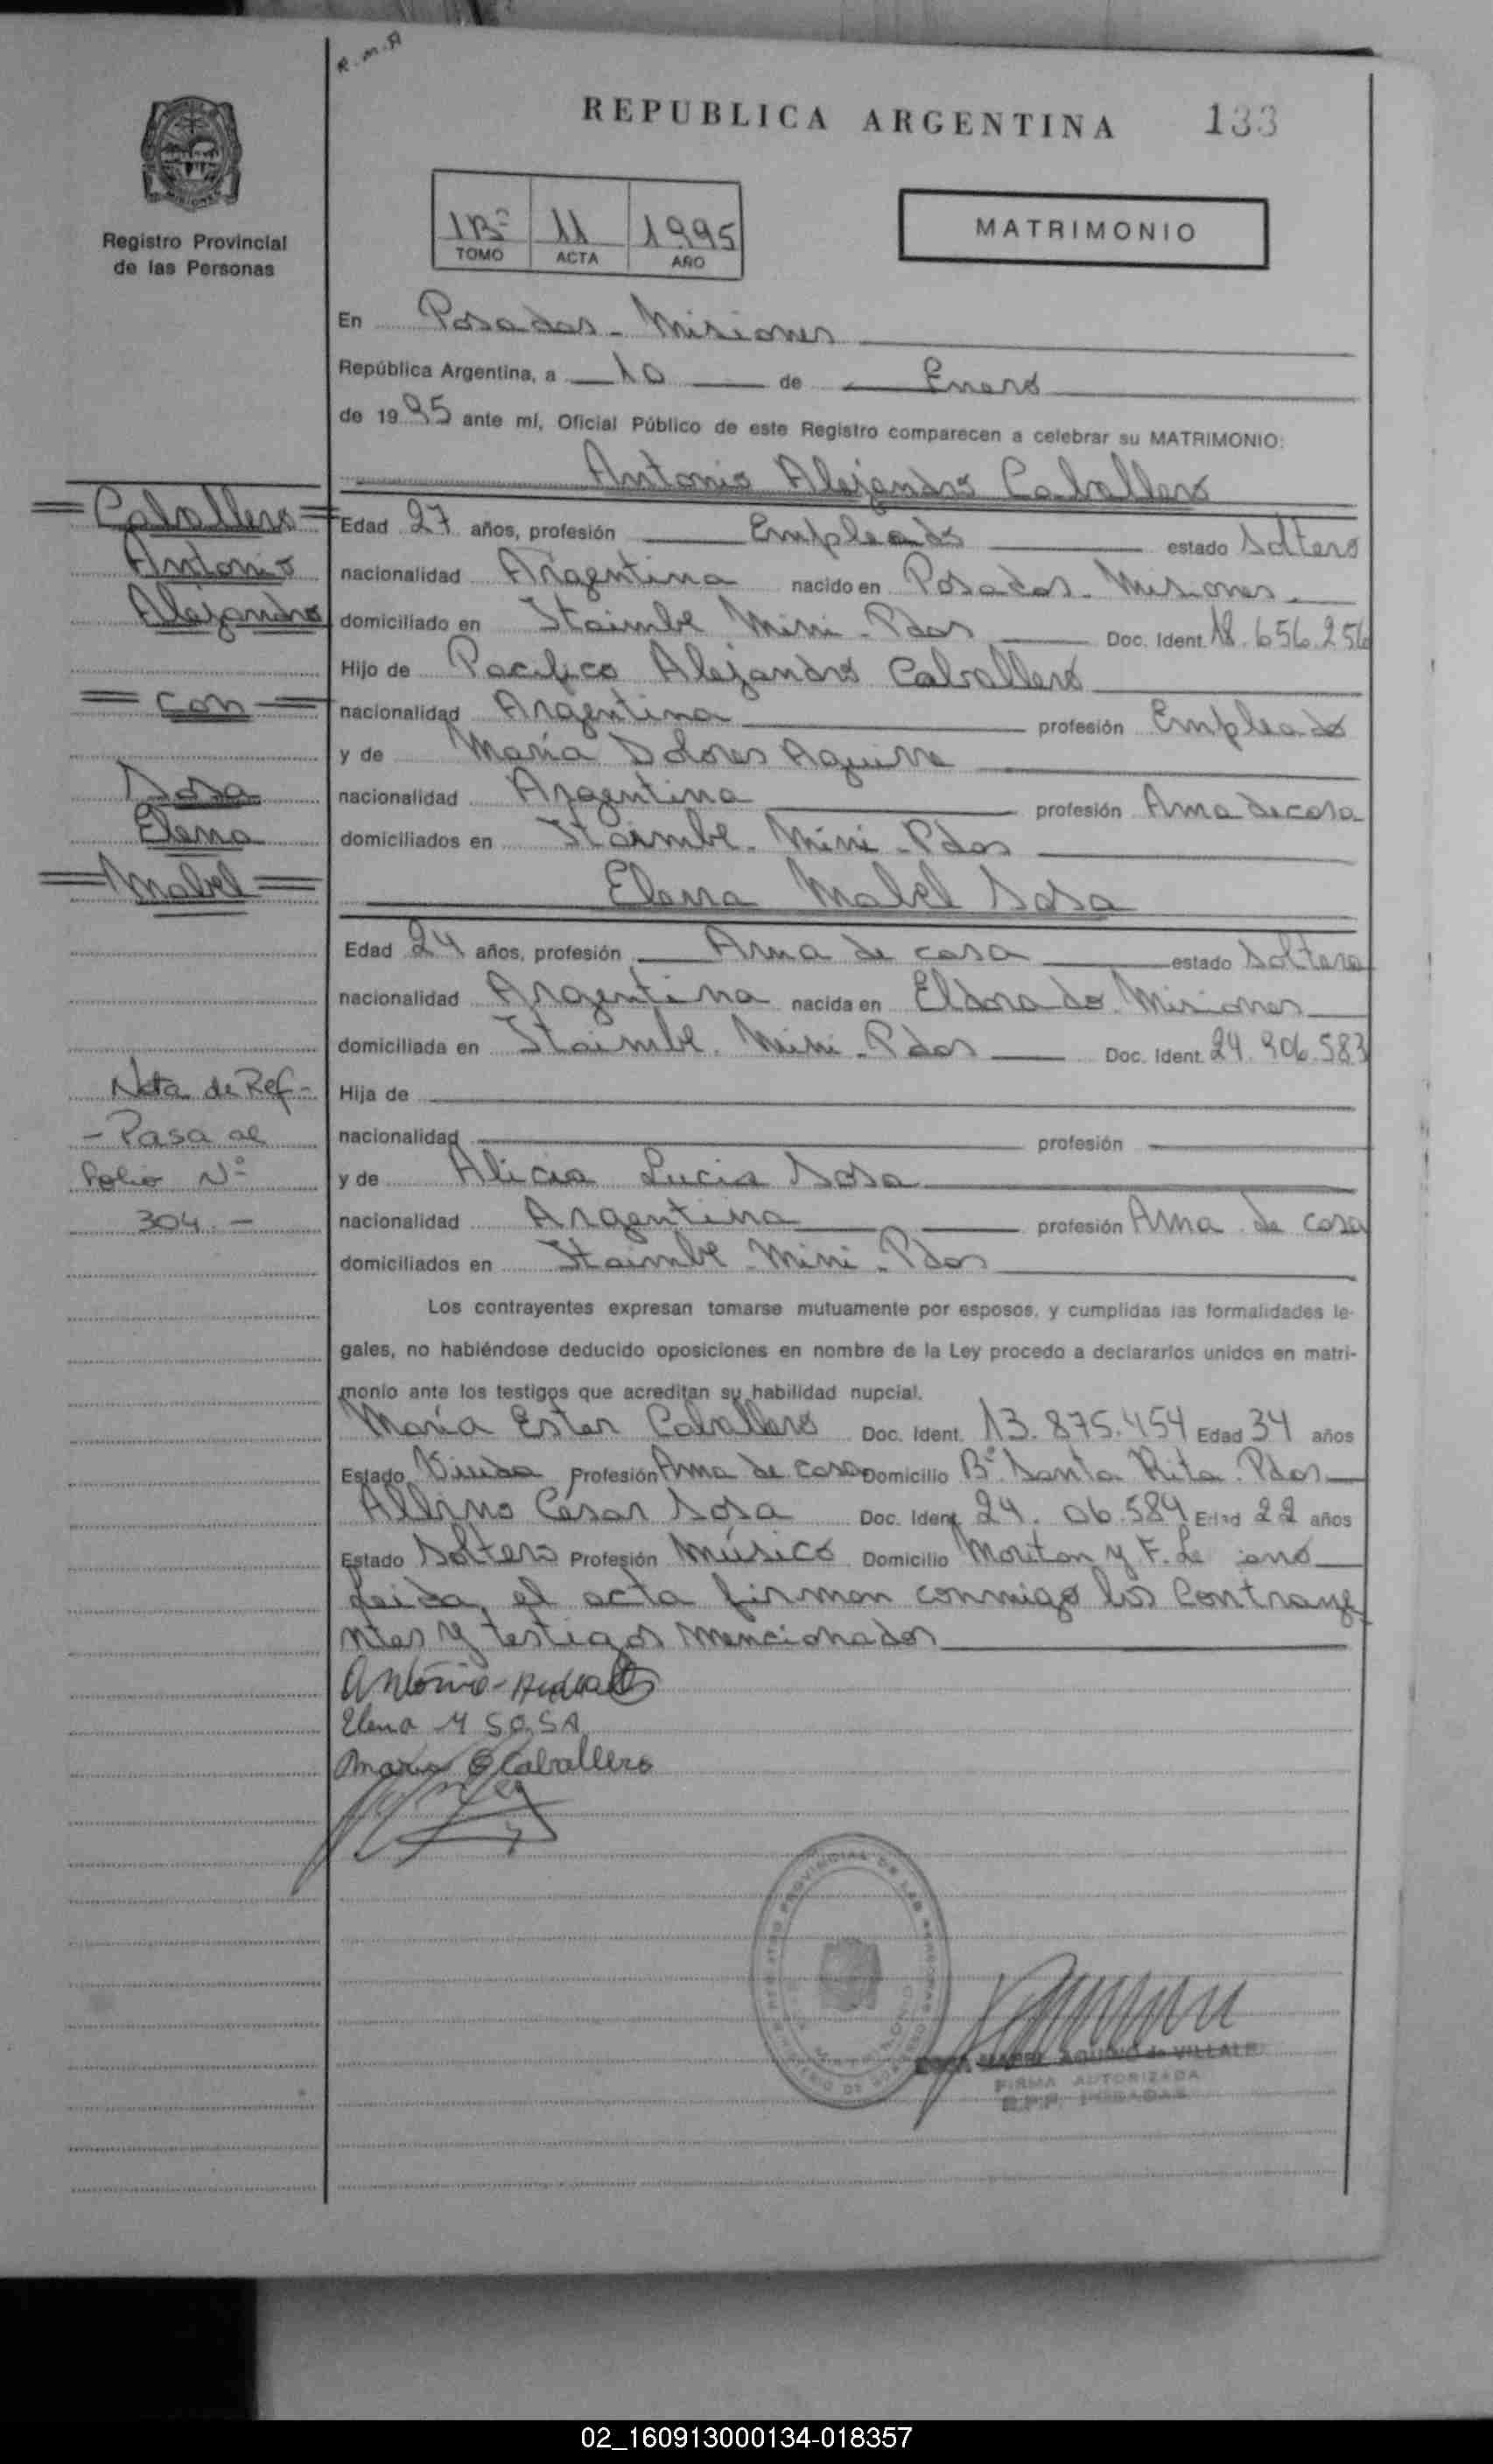 R.M.A
REPUBLICA ARGENTINA 133
Registro Provincial
de las Personas
1Bº 11 1995
TOMO ACTA AÑO
MATRIMONIO
En Posadas - Misiones
República Argentina, a 10 de Enero
de 1995 ante mí, Oficial Público de este Registro comparecen a celebrar su MATRIMONIO:
Antonio Alejandro Caballero
Caballero
Antonio
Alejandro
con
Sosa
Elena
Mabel
Edad 27 años, profesión Empleado estado Soltero
nacionalidad Argentina nacido en Posadas - Misiones.
domiciliado en Itaimbe Mini - Pdas Doc. Ident. 18.656.256
Hijo de Pacifico Alejandro Caballero
nacionalidad Argentina profesión Empleado
y de María Dolores Aguirre
nacionalidad Argentina profesión Ama de casa
domiciliados en Itaimbe - Mini - Pdas
Elena Mabel Sosa
Edad 24 años, profesión Ama de casa estado Soltera
nacionalidad Argentina nacida en Eldorado Misiones
domiciliada en Itaimbe - Mini - Pdas Doc. Ident. 24.906.583
Hija de
nacionalidad profesión
y de Alicia Lucia Sosa
nacionalidad Argentina profesión Ama de casa
domiciliados en Itaimbe - Mini - Pdas
Nota de Ref-
- Pasa al
Folio Nº
304.-
Los contrayentes expresan tomarse mutuamente por esposos, y cumplidas las formalidades le-
gales, no habiéndose deducido oposiciones en nombre de la Ley procedo a declararlos unidos en matri-
monio ante los testigos que acreditan su habilidad nupcial.
María Ester Caballero Doc. Ident. 13.875.454 Edad 34 años
Estado Viuda Profesión Ama de casa Domicilio Bº Santa Rita - Pdas
Albino César Sosa Doc. Ident. 24. 06.584 Edad 22 años
Estado Soltero Profesión Músico Domicilio Mouton y F. de
Leida, el acta firman conmigo los Contraye
ntes y testigos mencionados
Antonio
Elena M SOSA
Maria E Caballero
REGISTRO PROVINCIAL DE LAS PERSONAS
MINISTERIO DE GOBIERNO
MATRIMONIO
MABEL AQUINO de VILLALB
FIRMA AUTORIZADA
R.P.P. POSADAS
02_160913000134-018357